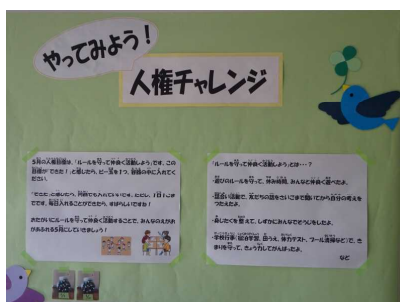 やってみよう!
人権チャレンジ
5月の人権目標は、「ルールを守って仲良く活動しよう」です。この
目標が「できた!」と感じたら、ビー玉を1つ、容器の中に入れてく
ださい。
「できた」と感じたら、何回でも入れていいです。ただし、1日1こま
でです。毎日入れることができたら、すばらしいですね!
おたがいにルールを守って仲良く活動することで、みんなのえがお
があふれる5月にしていきましょう!
「ルールを守って仲良く活動しよう」とは・・・?
・遊びのルールを守って、休み時間、みんなと仲良く遊べたよ。
・話合い活動で、友だちの話をさいごまで聞いてから自分の考えを
つたえたよ。
・身じたくを整えて、しずかにみんなでそうじをしたよ。
・学校行事(宿泊学習、田うえ、体力テスト、プール清掃など)で、き
まりを守って、きょう力してがんばったよ。
など